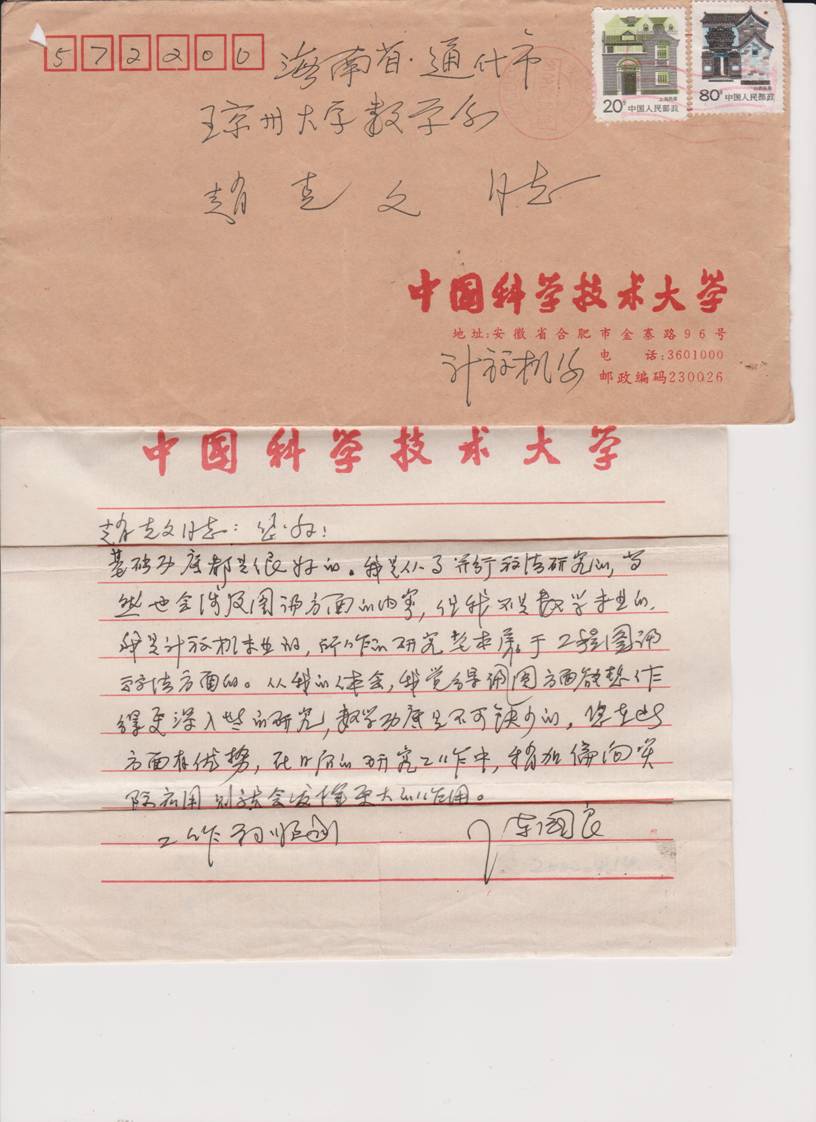 572200
海南省·通什市
20分 中国人民邮政
80分 中国人民邮政
琼州大学数学系
赵克文 同志
中国科学技术大学
地址:安徽省合肥市金寨路96号
电 话:3601000
计算机系
邮政编码230026
中国科学技术大学
赵克文同志:您好!
基础功底都是很好的。我是从事并行算法研究的,当
然也会涉及图论方面的内容,但我不是数学专业的,
我是计算机专业的,所作的研究 属于工程图论
算法方面的。从我的体会,我觉得 图方面能够作
得更深入些的研究,数学功底是不可缺少的,您在此
方面有优势,在日后的研究工作中,稍加偏向实
际应用 则就会发挥更大的作用。
工作顺利
陈国良